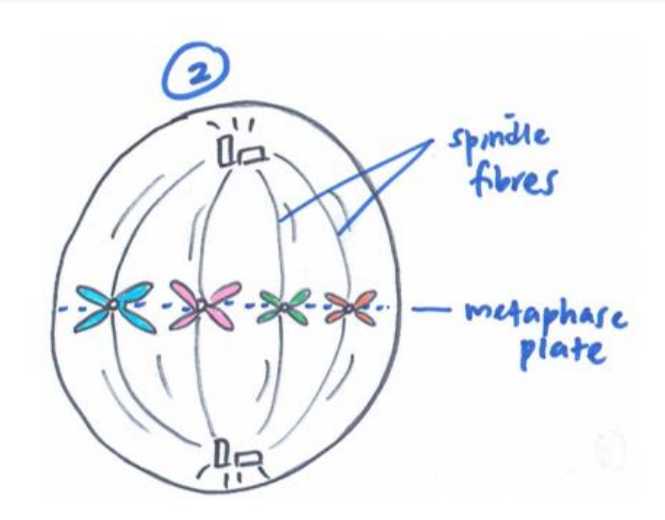 2
spindle
fibres
metaphase
plate